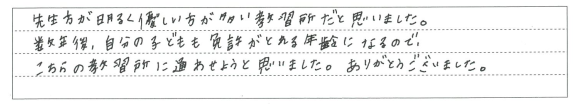 先生方が明るく優しい方が多い教習所だと思いました。
数年後、自分の子どもも免許がとれる年齢になるので、
こちらの教習所に通わせようと思いました。ありがとうございました。